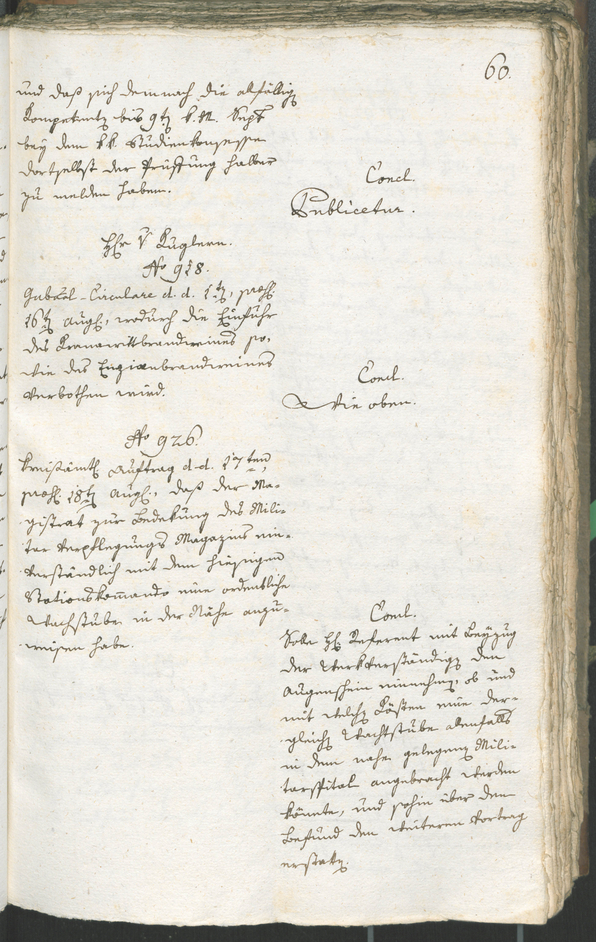 60.
und daß sich demnach die allfällig
Kompetent bis 9t k. M. Sept
bey dem kk. Studienkonsesse
dortselbst der Prüffung halber
zu melden haben.
Concl.
Publicetur.
Hr v Kuglern.
No 918.
Gubãl-Circulare d. d. 1t, præs.
16t Aug., wodurch die Einfuhr
des Kranawittbrandweines so,
wie des Enzianbrandweines
verbothen wird.
Concl.
Wie oben.
No 926.
Kreisämtl Auftrag d. d. 17ten,
præs. 18t Aug., daß der Ma-
gistrat zur Bedekung des Mili-
tar Verpflegungs Magazins ein-
verständlich mit dem hiesigen
Stationskom̄ando eine ordentliche
Wachstube in der Nähe anzu-
weisen habe.
Concl.
Habe H Referent mit Beyzug
der Werkverständig den
Augenschein einnehm, ob und
mit welch Kösten eine der-
gleich Wachtstube allenfalls
in dem nahe gelegen Mili-
tarspital angebracht werden
könnte, und sohin über den
Befund den weiteren Vortrag
erstatt.